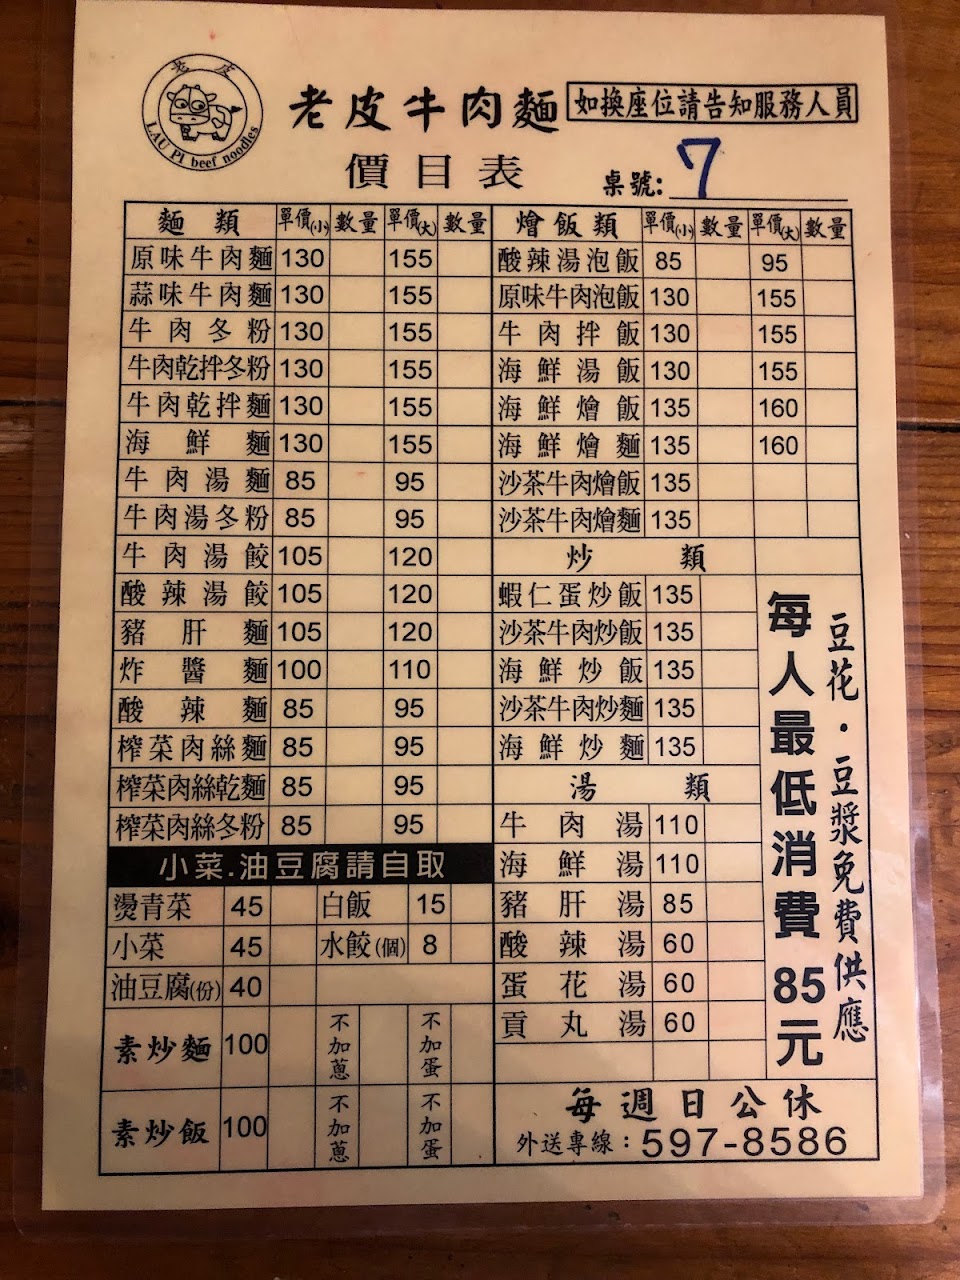 老皮
LAU PI beef noodles
老皮牛肉麵
如換座位請告知服務人員
價目表
桌號: 7
麵類 單價(小) 數量 單價(大) 數量
原味牛肉麵 130 155
蒜味牛肉麵 130 155
牛肉冬粉 130 155
牛肉乾拌冬粉 130 155
牛肉乾拌麵 130 155
海鮮麵 130 155
牛肉湯麵 85 95
牛肉湯冬粉 85 95
牛肉湯餃 105 120
酸辣湯餃 105 120
豬肝麵 105 120
炸醬麵 100 110
酸辣麵 85 95
榨菜肉絲麵 85 95
榨菜肉絲乾麵 85 95
榨菜肉絲冬粉 85 95
小菜.油豆腐請自取
燙青菜 45 白飯 15
小菜 45 水餃(個) 8
油豆腐(份) 40
素炒麵 100 不加蔥 不加蛋
素炒飯 100 不加蔥 不加蛋
燴飯類 單價(小) 數量 單價(大) 數量
酸辣湯泡飯 85 95
原味牛肉泡飯 130 155
牛肉拌飯 130 155
海鮮湯飯 130 155
海鮮燴飯 135 160
海鮮燴麵 135 160
沙茶牛肉燴飯 135
沙茶牛肉燴麵 135
炒類
蝦仁蛋炒飯 135
沙茶牛肉炒飯 135
海鮮炒飯 135
沙茶牛肉炒麵 135
海鮮炒麵 135
湯類
牛肉湯 110
海鮮湯 110
豬肝湯 85
酸辣湯 60
蛋花湯 60
貢丸湯 60
豆花·豆漿免費供應
每人最低消費85元
每週日公休
外送專線：597-8586